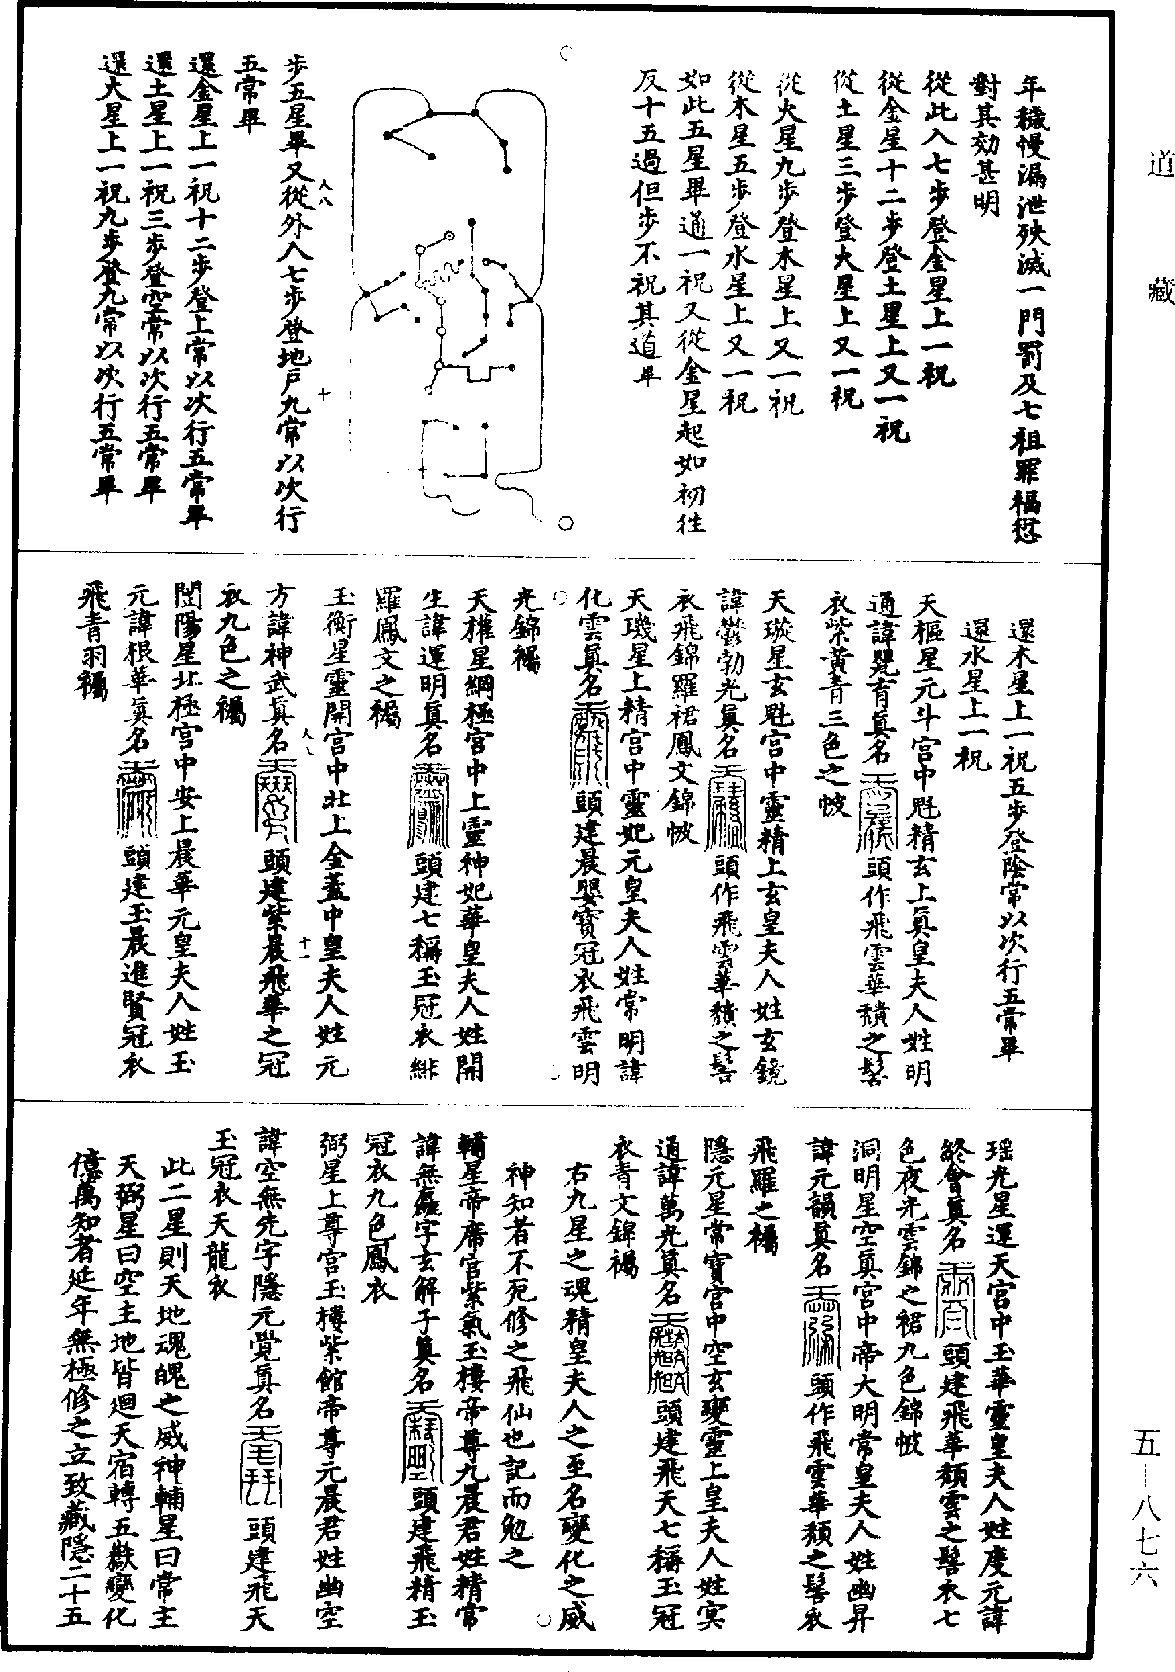 道藏
年穢慢漏泄殃滅一門罰及七祖罪福愆
對其効甚明
從此入七步登金星上一祝
從金星十二步登土星上又一祝
從土星三步登火星上又一祝
從火星九步登木星上又一祝
從木星五步登水星上又一祝
如此五星畢通一祝又從金星起如初往
反十五過但步不祝其道畢
步五星畢又從外入七步登地戶九常以次行
五常畢
還金星上一祝十二步登上常以次行五常畢
還土星上一祝三步登空常以次行五常畢
還火星上一祝九步登九常以次行五常畢
八八
十
還木星上一祝五步登陰常以次行五常畢
還水星上一祝
天樞星元斗宮中魁精玄上真皇夫人姓明
通諱覺育真名頭作飛雲華穨之髻
衣紫黃青三色之帔
天璇星玄魁宮中靈精上玄皇夫人姓玄鏡
諱鬱勃光真名頭作飛雲華穨之髻
衣飛錦羅裙鳳文錦帔
天璣星上精宮中靈妃元皇夫人姓常明諱
化雲真名頭建晨嬰寶冠衣飛雲明
光錦襡
天權星綱極宮中上靈神妃華皇夫人姓開
生諱運明真名頭建七稱玉冠衣緋
羅鳳文之襡
玉衡星靈開宮中北上金蓋中皇夫人姓元
方諱神武真名頭建紫晨飛華之冠
衣九色之襡
闓陽星北極宮中安上晨華元皇夫人姓玉
元諱根華真名頭建玉晨進賢冠衣
飛青羽襡
十一
瑶光星運天宮中玉華靈皇夫人姓度元諱
終會真名頭建飛華穨雲之髻衣七
色夜光雲錦之裙九色錦帔
洞明星空真宮中帝大明常皇夫人姓幽昇
諱元韻真名頭作飛雲華穨之髻衣
飛羅之襡
隱元星常寶宮中空玄變靈上皇夫人姓㝠
通諱萬光真名頭建飛天七稱玉冠
衣青文錦襡
右九星之魂精皇夫人之至名變化之威
神知者不死修之飛仙也記而勉之
輔星帝席宮紫氣玉樓帝尊九晨君姓精常
諱無蘊字玄解子真名頭建飛精玉
冠衣九色鳳衣
弼星上尊宮玉樓紫館帝尊元晨君姓幽空
諱空無先字隱元覺真名頭建飛天
玉冠衣天龍衣
此二星則天地魂魄之威神輔星曰常主
天弼星曰空主地皆迴天宿轉五嶽變化
億萬知者延年無極修之立致藏隱二十五
五—八七六